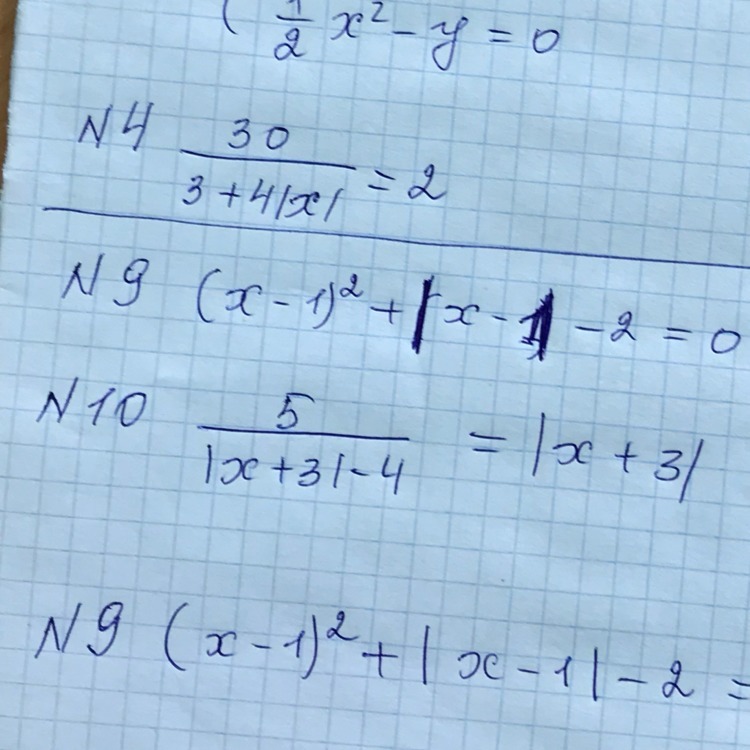 ( 1/2 x² - y = 0
N4 30/(3 + 4|x|) = 2
N9 (x - 1)² + |x - 1| - 2 = 0
N10 5/(|x + 3| - 4) = |x + 3|
N9 (x - 1)² + | x - 1 | - 2 =